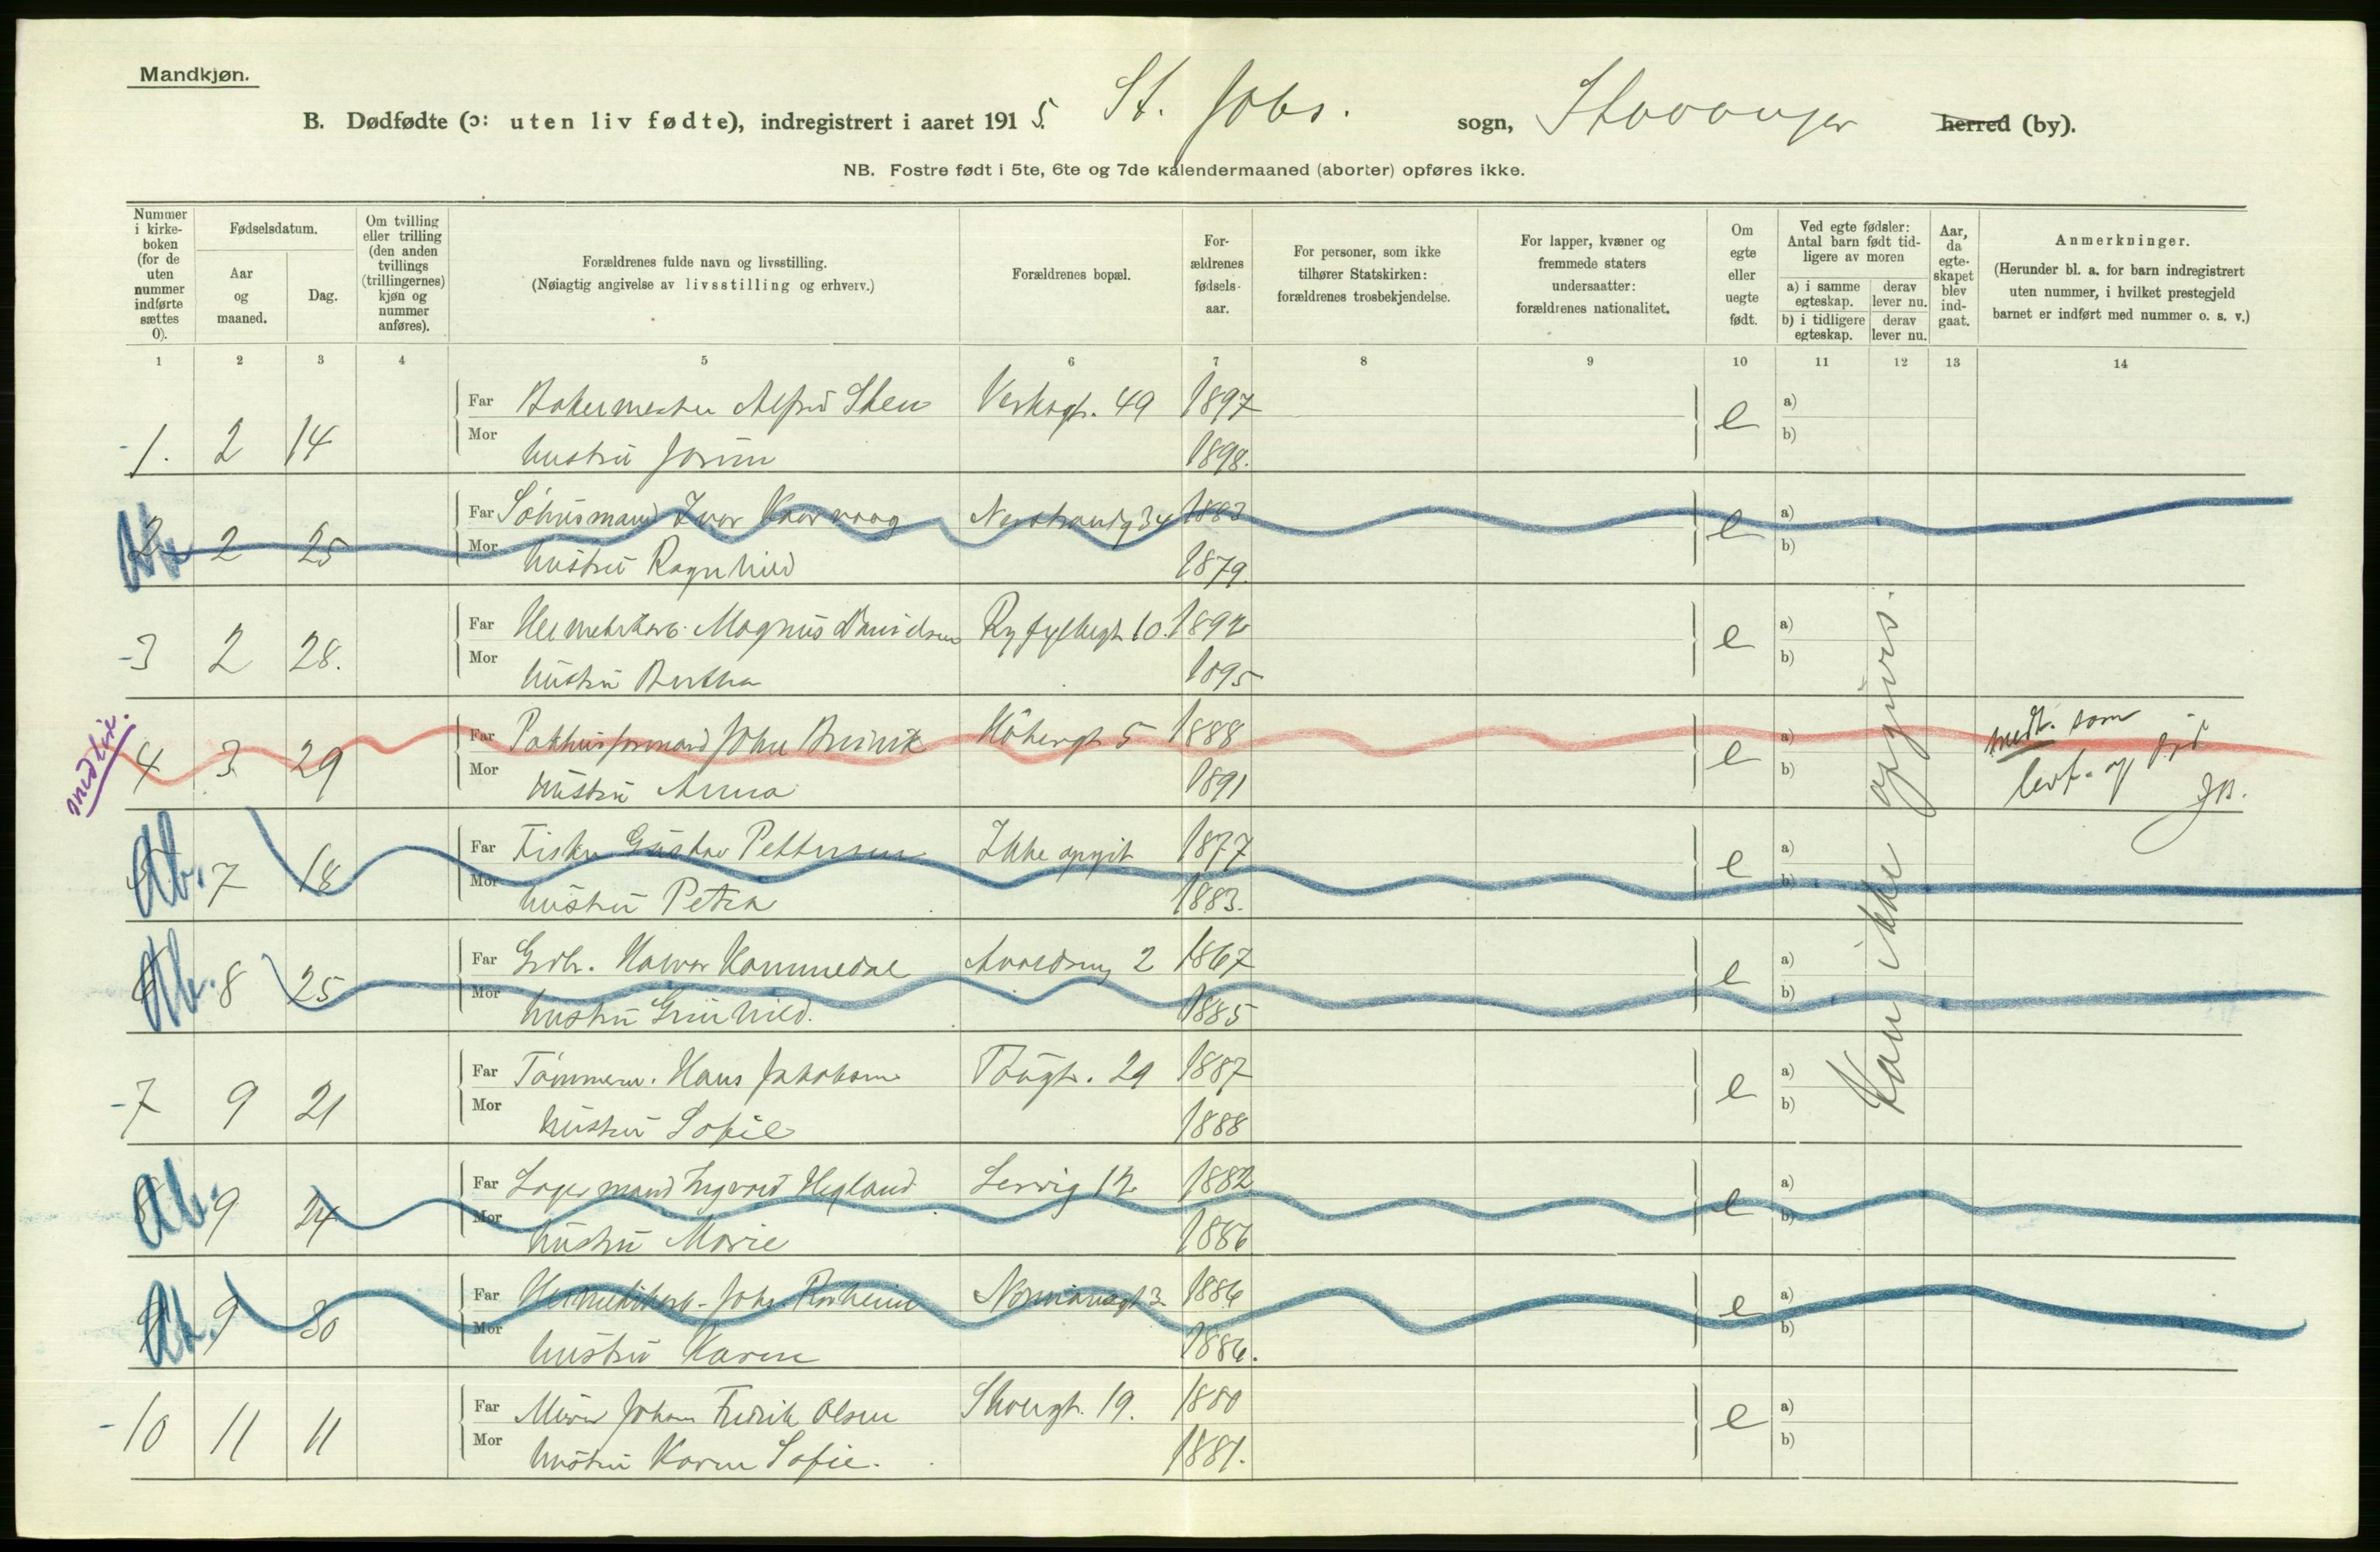 Mandkjøn.
B. Dødfødte (ɔ: uten liv fødte), indregistrert i aaret 1915. St. Johs. sogn, Stavanger herred (by).
NB. Fostre født i 5te, 6te og 7de kalendermaaned (aborter) opføres ikke.
Nummer i kirkeboken (for de uten nummer indførte sættes 0).
Fødselsdatum.
Aar og maaned.
Dag.
Om tvilling eller trilling (den anden tvillings (trillingernes) kjøn og nummer anføres).
Forældrenes fulde navn og livsstilling.
(Nøiagtig angivelse av livsstilling og erhverv.)
Forældrenes bopæl.
Forældrenes fødselsaar.
For personer, som ikke tilhører Statskirken: forældrenes trosbekjendelse.
For lapper, kvæner og fremmede staters undersaatter: forældrenes nationalitet.
Om egte eller uegte født.
Ved egte fødsler: Antal barn født tidligere av moren
a) i samme egteskap.
derav lever nu.
b) i tidligere egteskap.
derav lever nu.
Aar, da egteskapet blev indgaat.
Anmerkninger.
(Herunder bl. a. for barn indregistrert uten nummer, i hvilket prestegjeld barnet er indført med nummer o. s. v.)
1 2 3 4 5 6 7 8 9 10 11 12 13 14
Far Bakermester Alfred Verksgt. 49 1897 a)
1. 2 14 e
Mor hustru 1898. b)
Far Ivar 34 1883 a)
2 2 25 e
Mor hustru Ragnhild 1879. b)
Far Magnus Danielsen Ryfylkegt 10. 1892 a)
3 2 28. e
Mor hustru Bertha 1895 b)
med live.
Far Pakhusformand John 5 1888 a) medt. som
4 3 29 e levf. og død
Mor hustru Anna 1891 b)
Ab.
Far Fisker Gustav Pettersen Ikke opgit 1877 a)
5 7 18 e
Mor hustru Petra 1883. b)
Ab.
Far Halvor 2 1867 a)
6 8 25 e
Mor hustru Gunhild. 1885 b)
Far Tømmerm. Hans Jakobsen 1887 a)
7 9 21 e
Mor hustru Sofie 1888 b)
Ab.
Far Lagermand Ingvald Hegland Lervig 12 1882 a)
8 9 24 e
Mor hustru Marie 1886 b)
Ab.
Far Johs. 3 1886 a)
9 9 30 e
Mor hustru Karen 1886. b)
Far Murer Johan Fredrik Olsen 19. 1880 a)
10 11 11 e
Mor hustru Karen Sofie. 1881. b)
Kan ikke opgives.